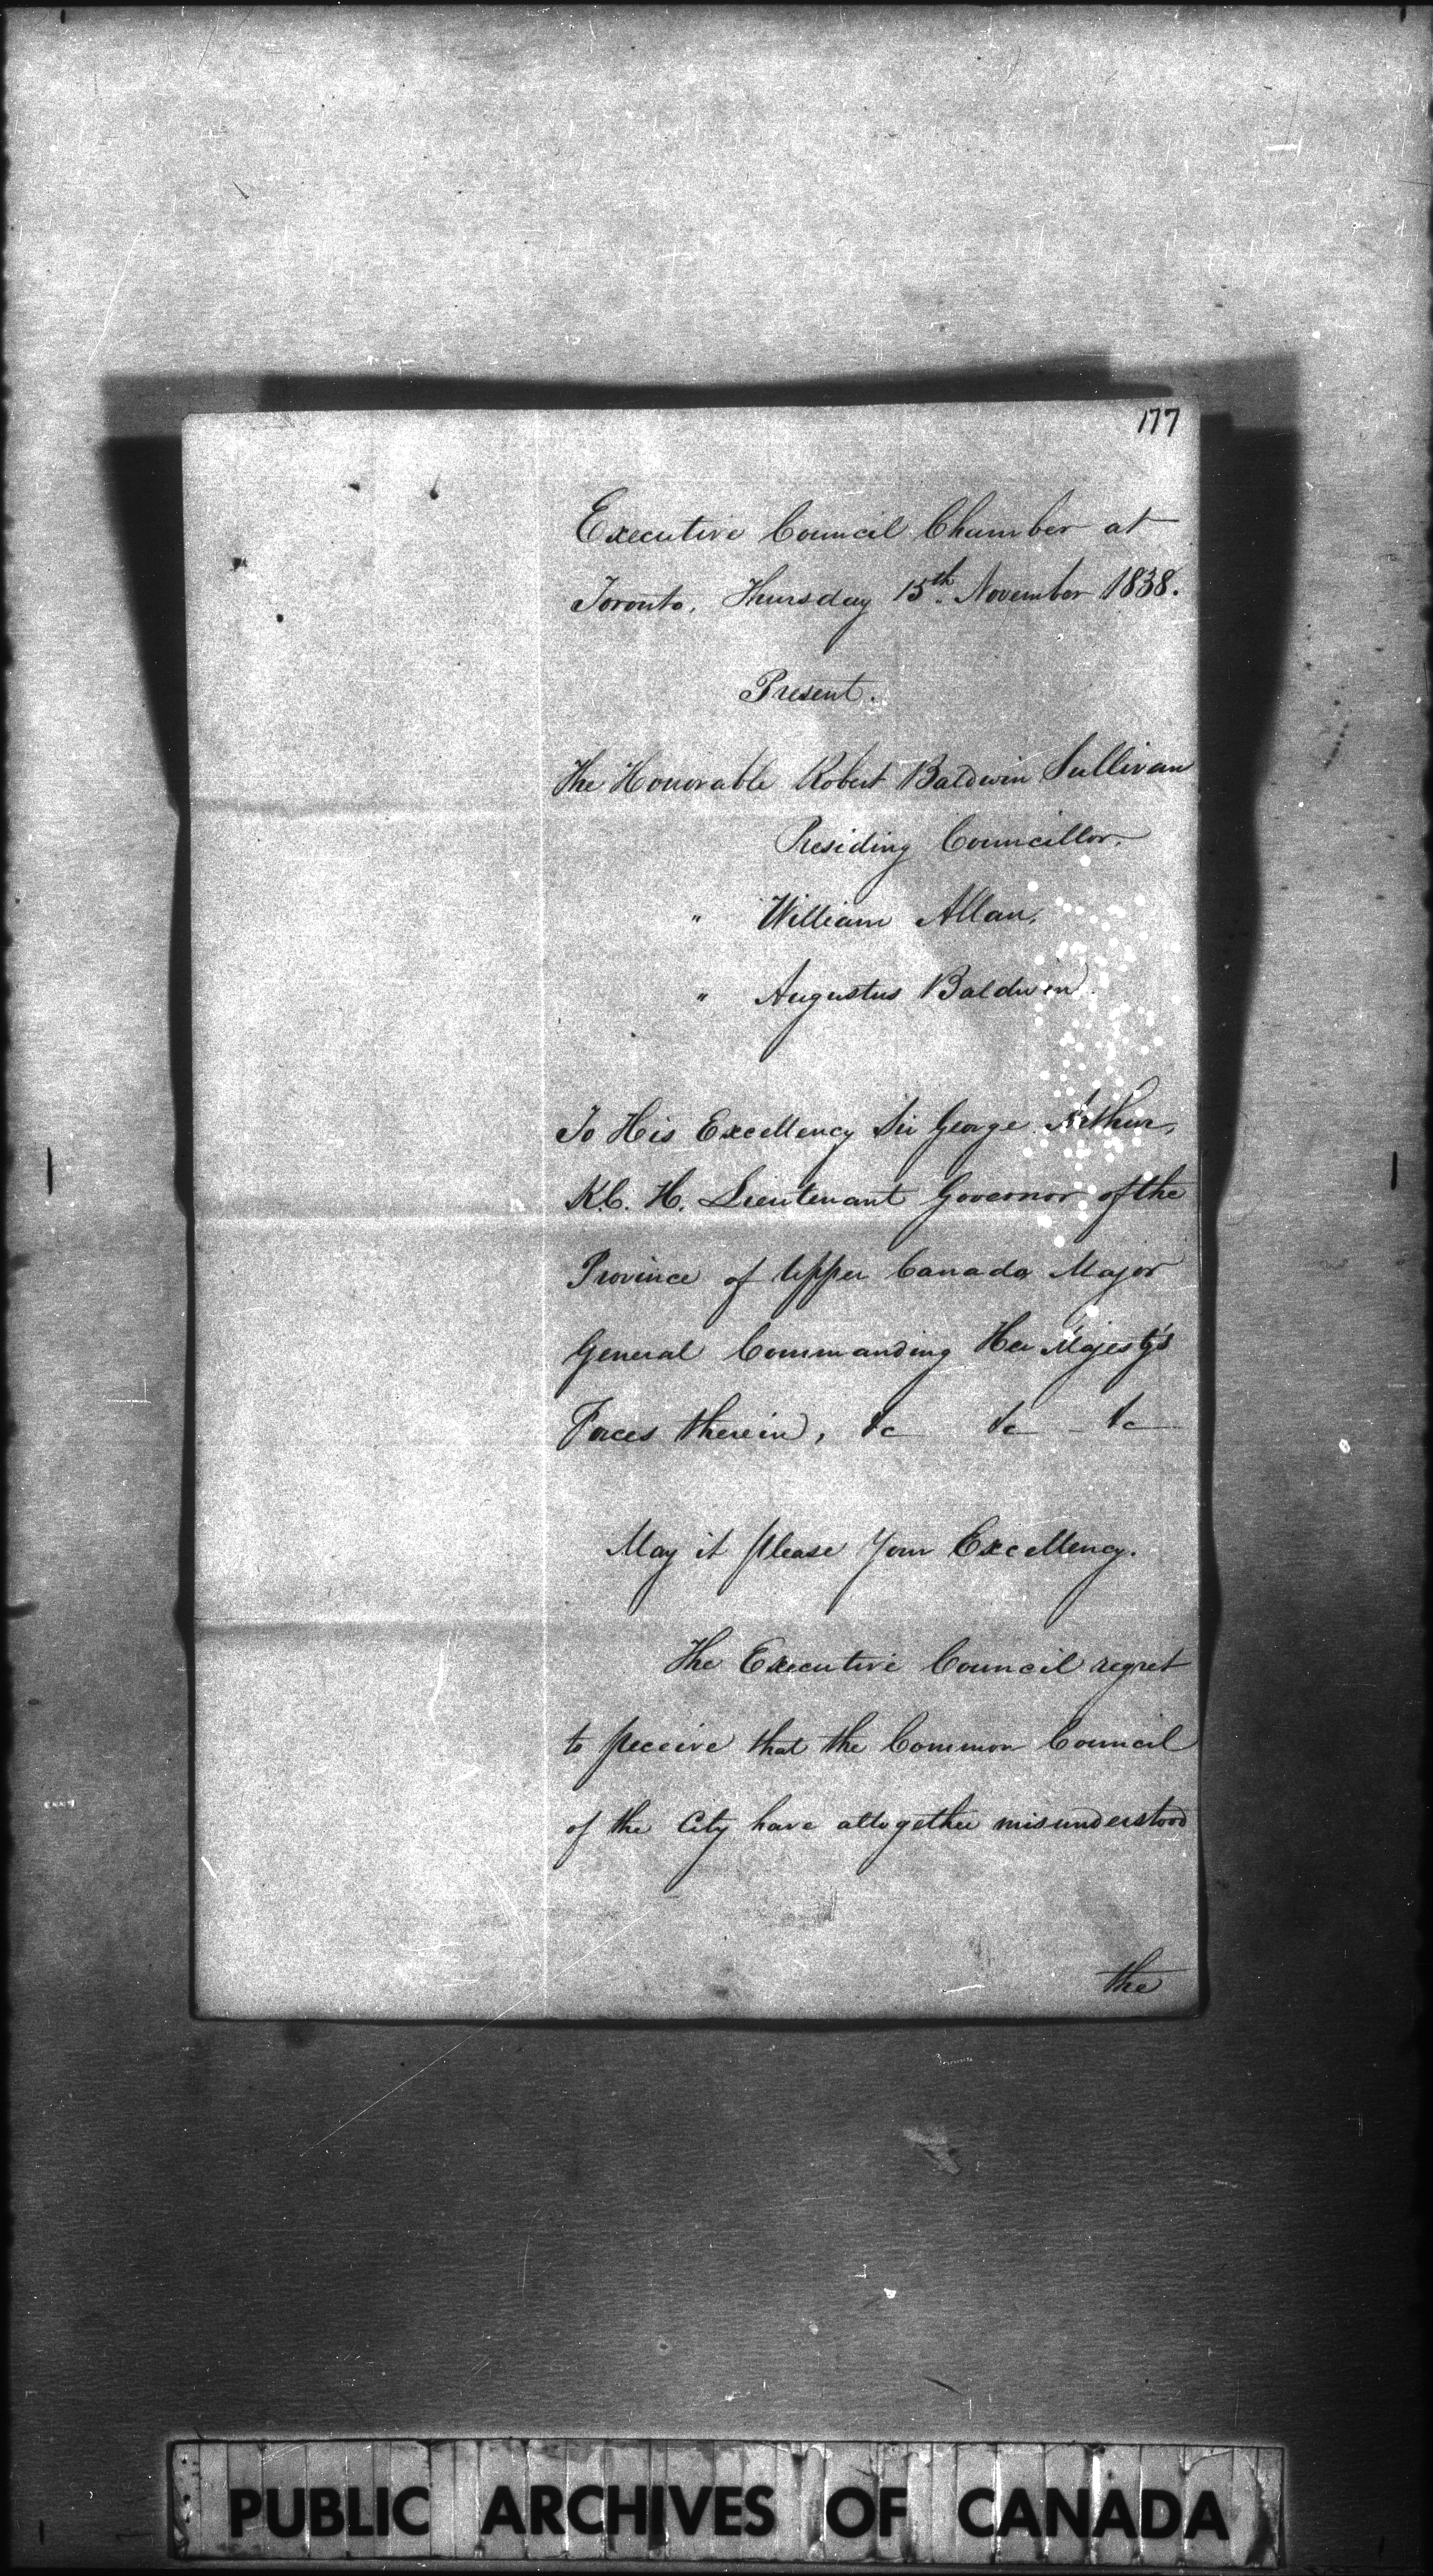 177
Executive Council Chamber at
Toronto, Thursday 15th November 1838.
Present.
The Honorable Robert Baldwin Sullivan
Presiding Councillor.
" William Allan,
" Augustus Baldwin.
To His Excellency Sir George Arthur,
K.C.H. Lieutenant Governor of the
Province of Upper Canada Major
General Commanding Her Majesty's
Forces therein, &c &c &c
May it please Your Excellency.
The Executive Council regret
to perceive that the Common Council
of the City have altogether misunderstood
the
PUBLIC ARCHIVES OF CANADA